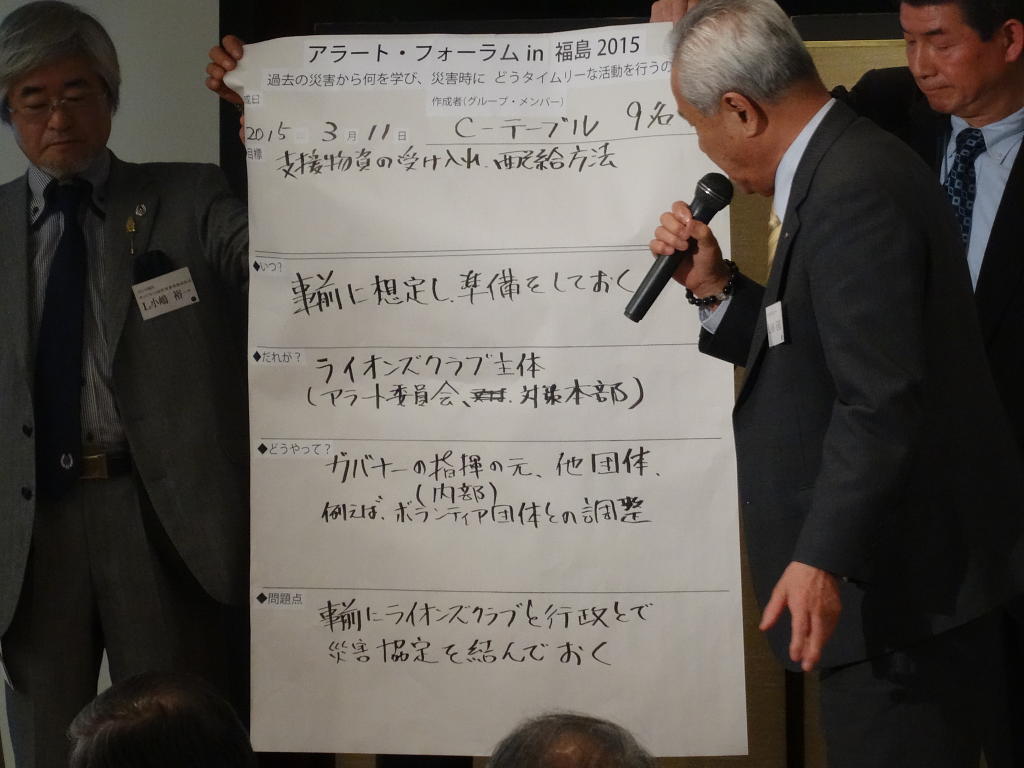 アラート・フォーラム in 福島 2015
過去の災害から何を学び、災害時に どうタイムリーな活動を行うの
作成者(グループ・メンバー)
成日
2015 3月11日 C-テーブル 9名
目標
支援物資の受け入れ、配給方法
◆いつ?
事前に想定し、準備をしておく
◆だれが?
ライオンズクラブ主体
(アラート委員会、対策本部)
◆どうやって?
ガバナーの指揮の元、他団体、
(内部)
例えば、ボランティア団体との調整
◆問題点
事前にライオンズクラブと行政とで
災害協定を結んでおく
L.小嶋 裕一